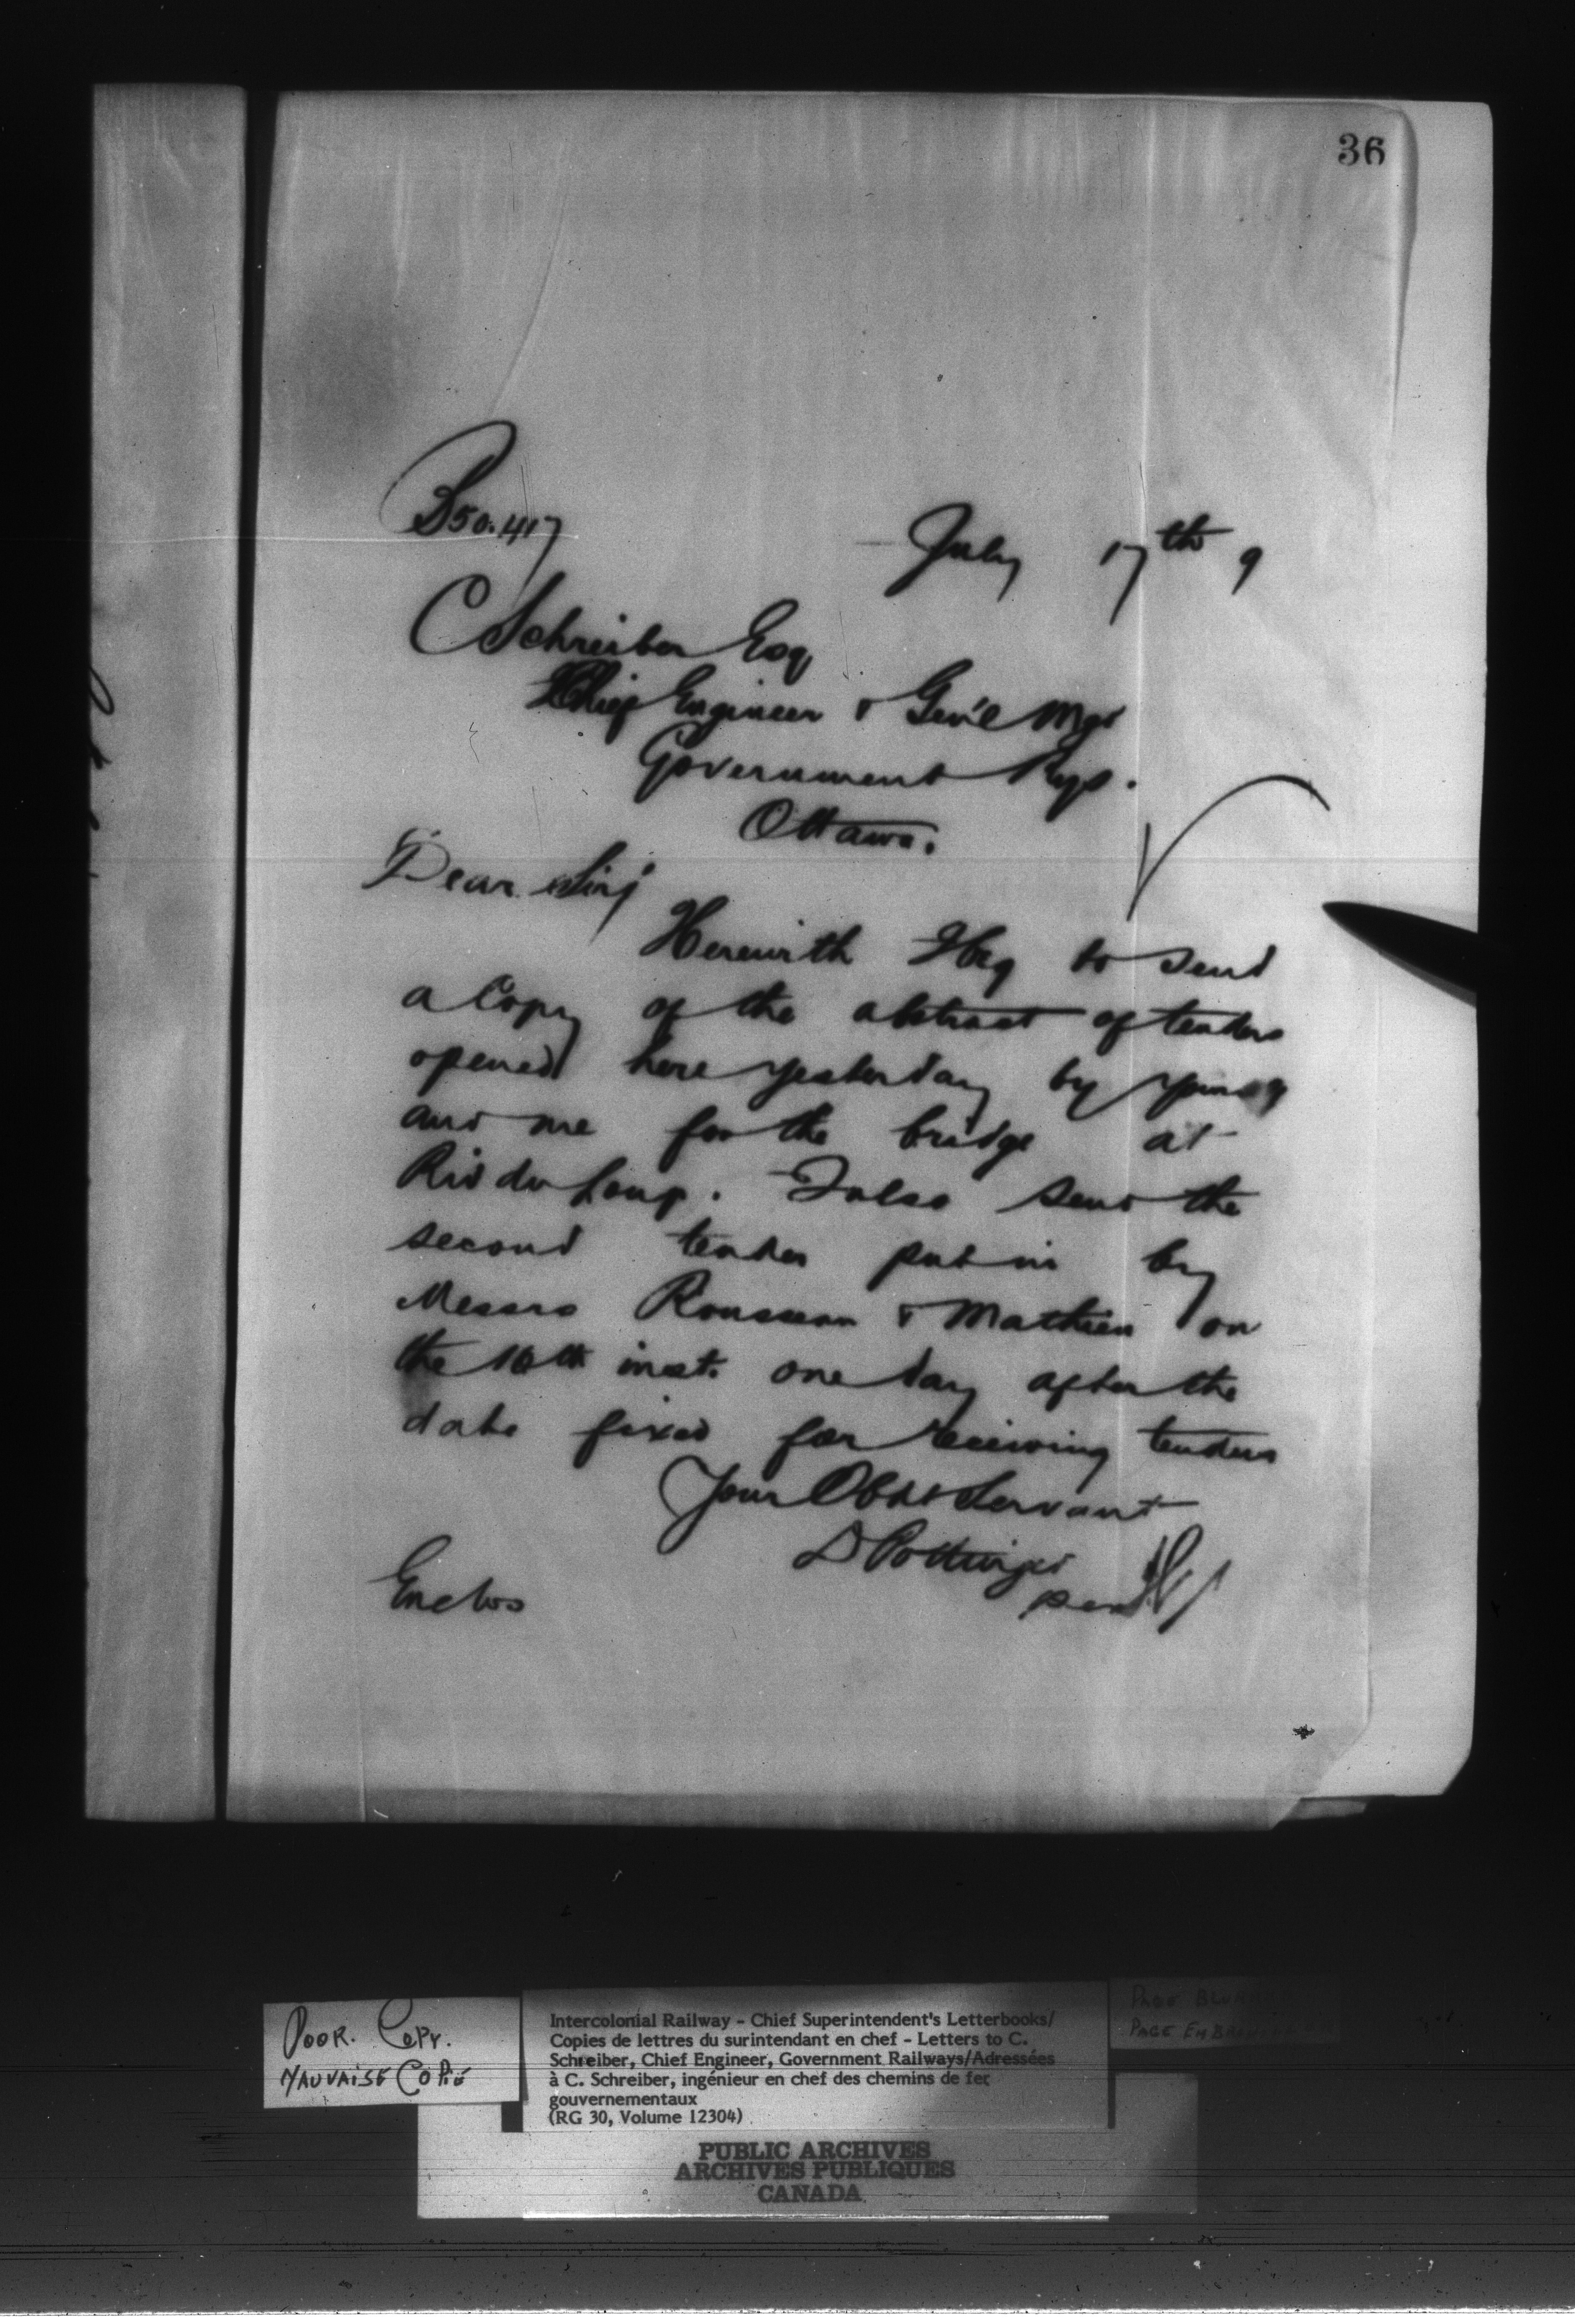 36
B 50.417
July 17th 9
C Schreiber Esq
Chief Engineer & Gen'l Mgr
Government Rys.
Ottawa.
Dear Sir,
Herewith I beg to send
a Copy of the abstract of tenders
opened here yesterday by
and me for the bridge at
Riv du Loup. I also send the
second tender put in by
Messrs Rousseau & Mathieu on
the 16th inst. one day after the
date fixed for receiving tenders
Your Obdt Servant
D Pottinger
per
Enclos
POOR. COPY.
MAUVAISE COPIE
Intercolonial Railway - Chief Superintendent's Letterbooks/
Copies de lettres du surintendant en chef - Letters to C.
Schreiber, Chief Engineer, Government Railways/Adressées
à C. Schreiber, ingénieur en chef des chemins de fer
gouvernementaux
(RG 30, Volume 12304)
PUBLIC ARCHIVES
ARCHIVES PUBLIQUES
CANADA